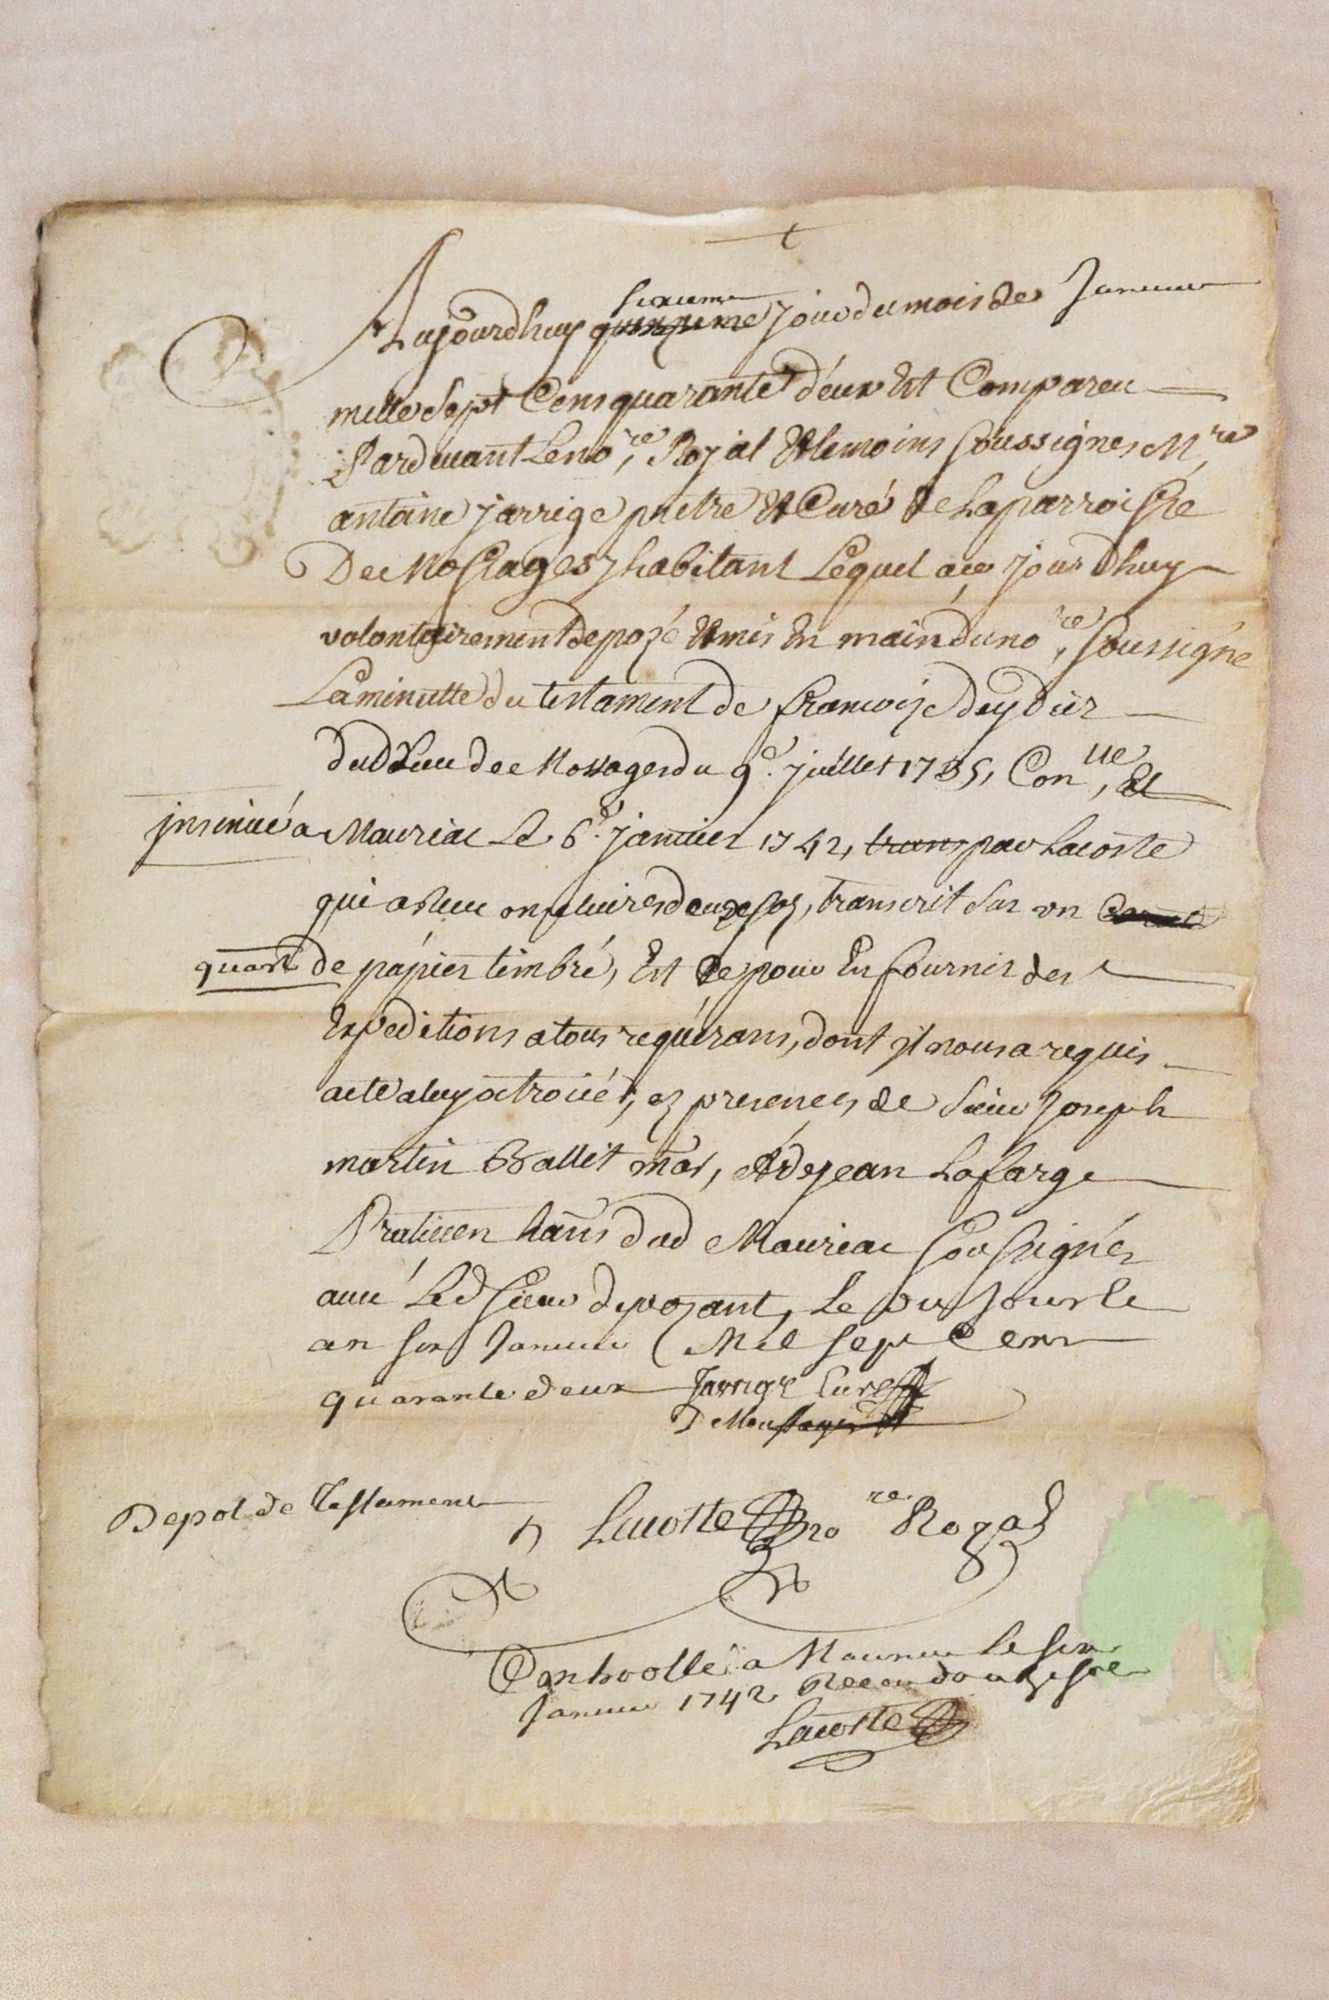 Aujourdhuy quinzieme sixieme jour du mois de Janvier
mille sept Cens quarante d'eux Est Compareu
Pardevant Le no.re Royal & temoins soussignes M.re
antoine jarrige pretre & Curé de La parroisse
De Mossages y habitant Lequel a ce jourdhuy
volontairement depozé & mis En main du no.re soussigné
La minutte du testament de francoize deydier
dud Lieu de Mossages du 9e. juillet 1735, Con.lle, &
insinué a Mauriac Le 6e. janvier 1742, trans par Lacoste
qui a Receu douze sols, transcrit sur un
quart de papier timbré, Est Ce pour En fournir des
Expeditions a tous requérans, dont il nous a requis
acte a luy octroiéé, ez presences de sieur Joseph
martin Ballet mar, & de jean Lafarge
Praticien hans dud Mauriac Soussignés
avec Led sieur depozant, Le dix jour le
an six Janvier Mil sept Cens
quarante deux Jarrige Curé
De Moussages
Depot de Testament
Lacoste no.re Royal
Controllé a Mauriac le six
Janvier 1742 Receu douze sols
Lacoste